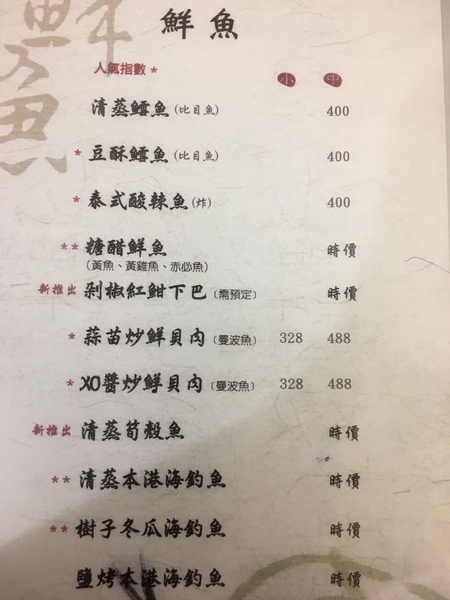 鮮魚
人氣指數 * 小 中
清蒸鱈魚(比目魚) 400
* 豆酥鱈魚(比目魚) 400
* 泰式酸辣魚(炸) 400
** 糖醋鮮魚 時價
(黃魚、黃雞魚、赤必魚)
新推出 剁椒紅魽下巴(需預定) 時價
* 蒜苗炒鮮貝肉(曼波魚) 328 488
* XO醬炒鮮貝肉(曼波魚) 328 488
新推出 清蒸筍殼魚 時價
** 清蒸本港海釣魚 時價
** 樹子冬瓜海釣魚 時價
鹽烤本港海釣魚 時價